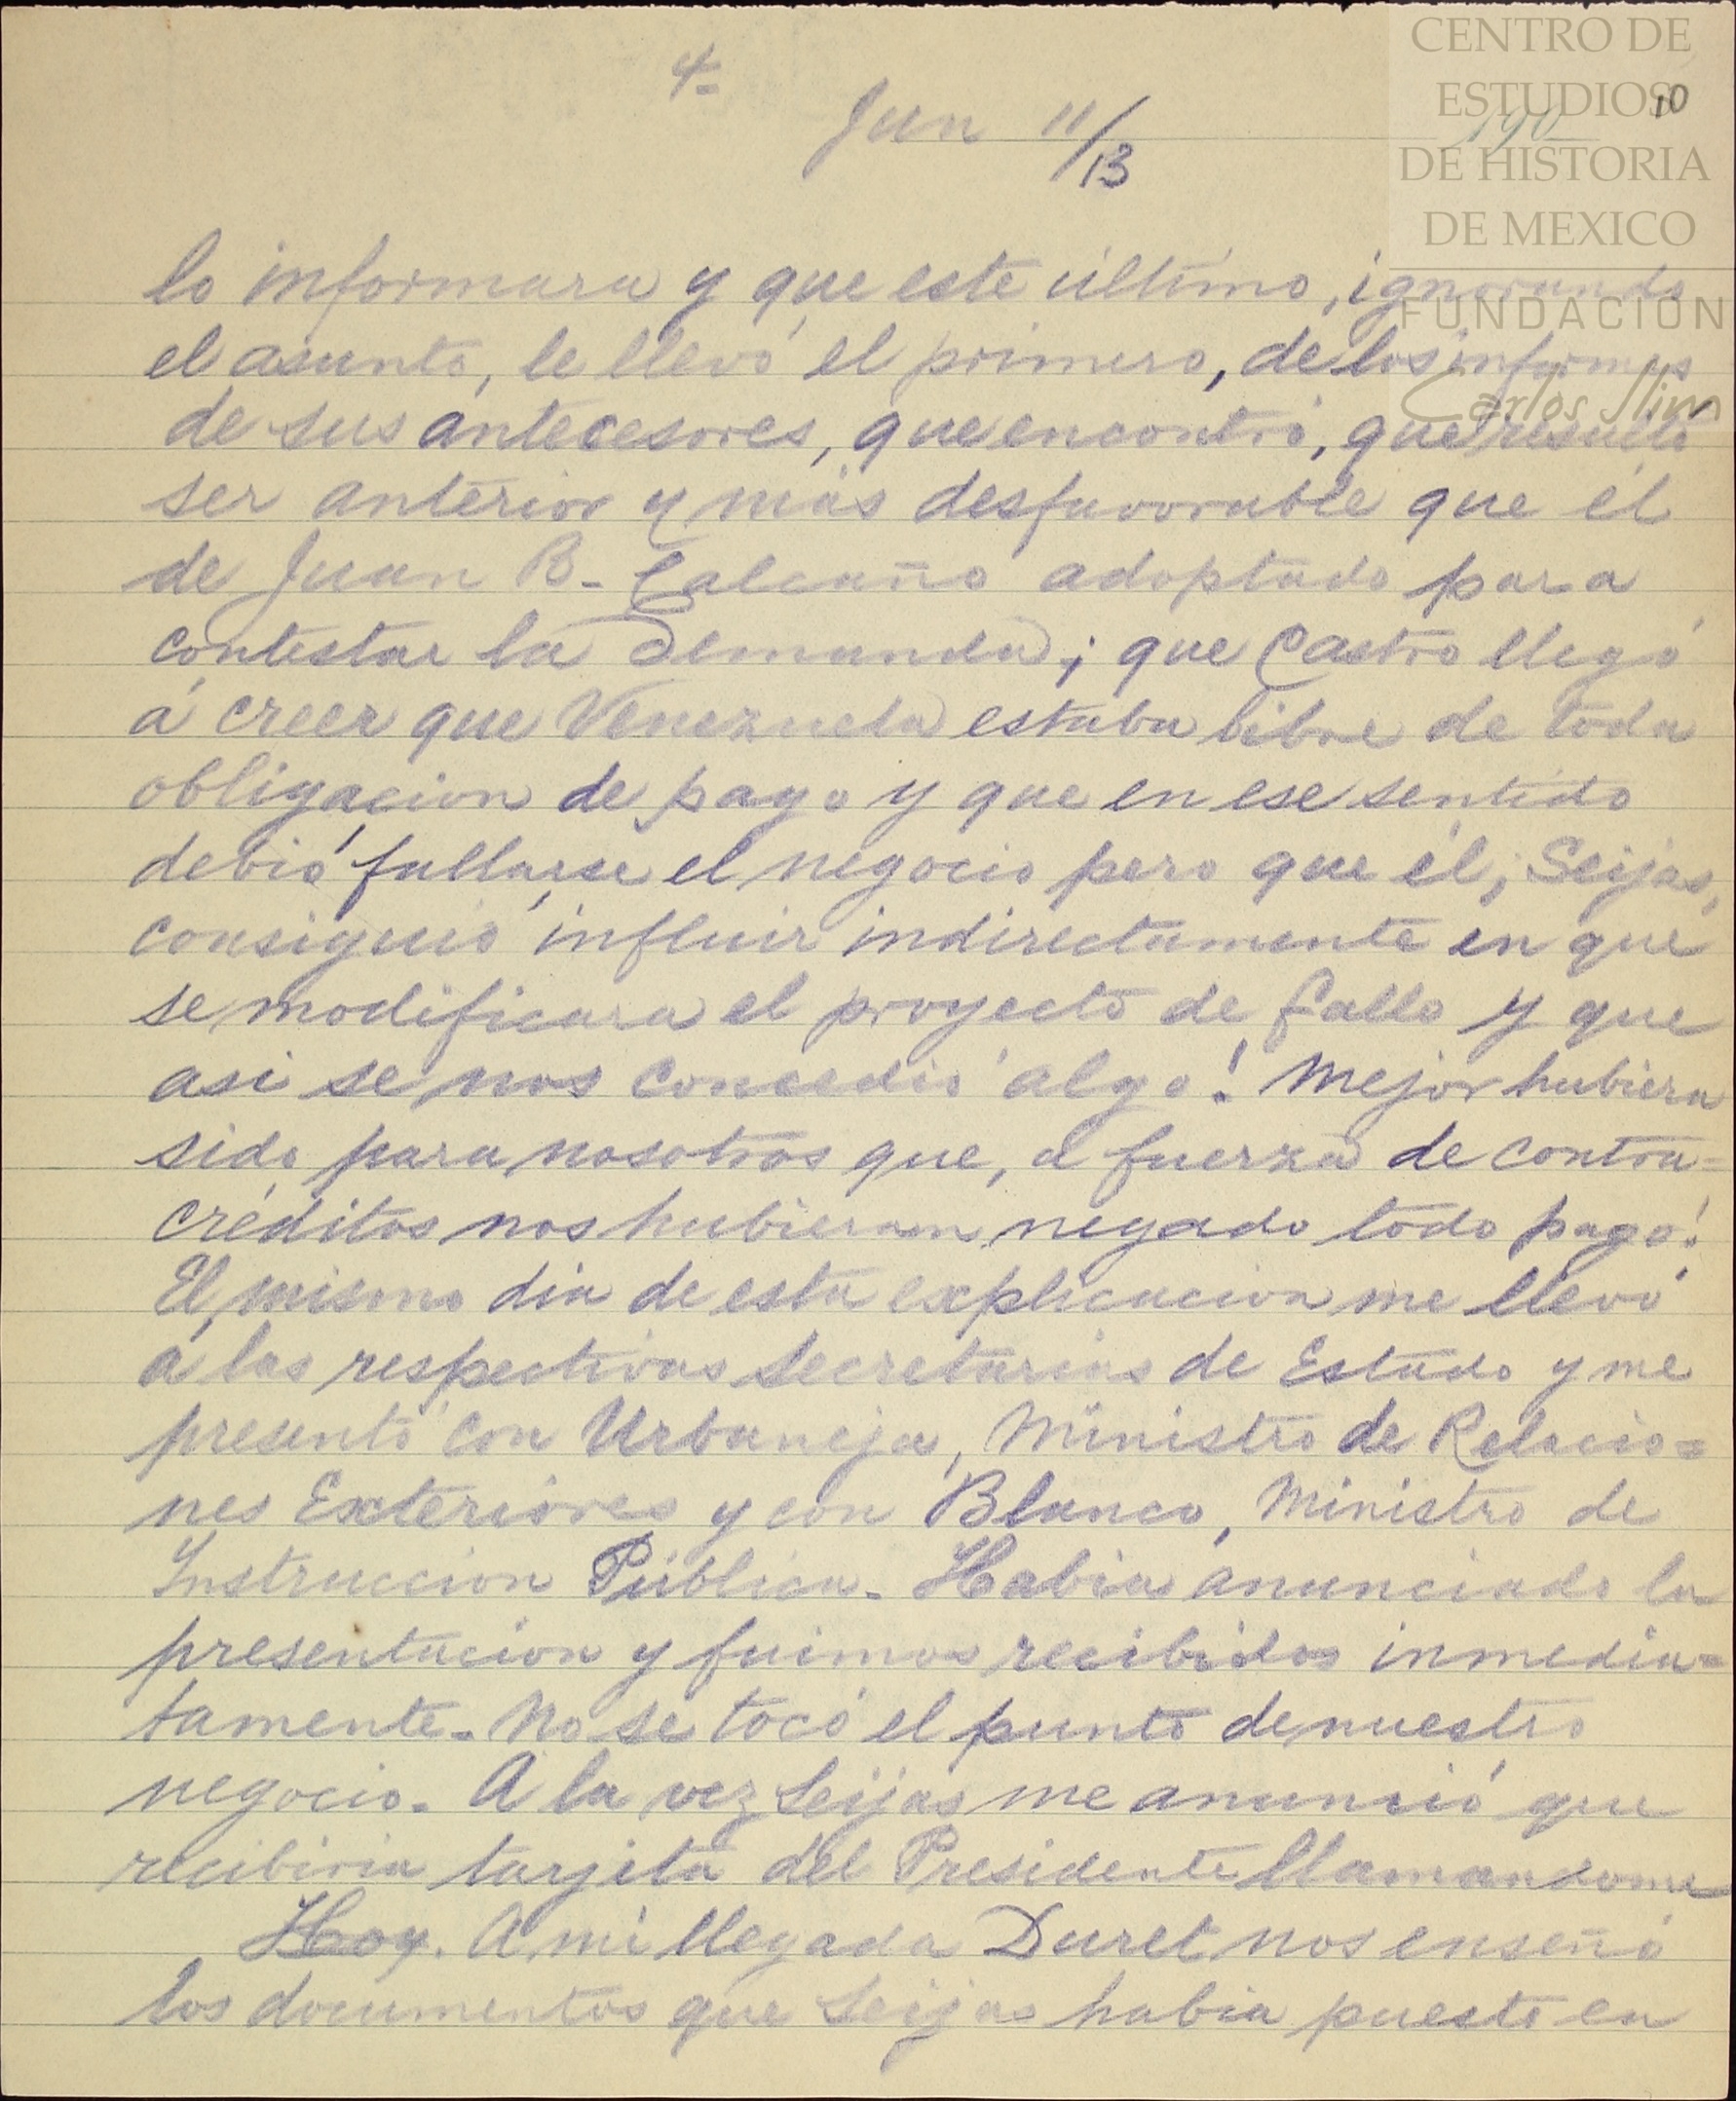 4-
Jun 11/13
10
190
CENTRO DE
ESTUDIOS
DE HISTORIA
DE MEXICO
FUNDACIÓN
Carlos Slim
lo informara y que este último, ignorando
el asunto, le llevó el primero, de los informes
de sus antecesores, que encontró, que resultó
ser anterior y más desfavorable que el
de Juan B. Calcaño adoptado para
contestar la demanda; que Castro llegó
á creer que Venezuela estaba libre de toda
obligacion de pago y que en ese sentido
debió fallarse el negocio pero que él, Seijas,
consiguió influir indirectamente en que
se modificara el proyecto de fallo y que
asi se nos concedió algo! Mejor hubiera
sido para nosotros que, a fuerza de contra=
créditos nos hubieran negado todo pago!
El mismo dia de esta explicacion me llevó
á las respectivas Secretarias de Estado y me
presentó con Urbaneja, Ministro de Relacio=
nes Exteriores y con Blanco, Ministro de
Instruccion Pública. Habia anunciado la
presentacion y fuimos recibidos inmedia=
tamente. No se tocó el punto de nuestro
negocio. A la vez Seijas me anunció que
recibiria tarjeta del Presidente llamandome
Hoy. A mi llegada Duret nos enseñó
los documentos que Seijas habia puesto en